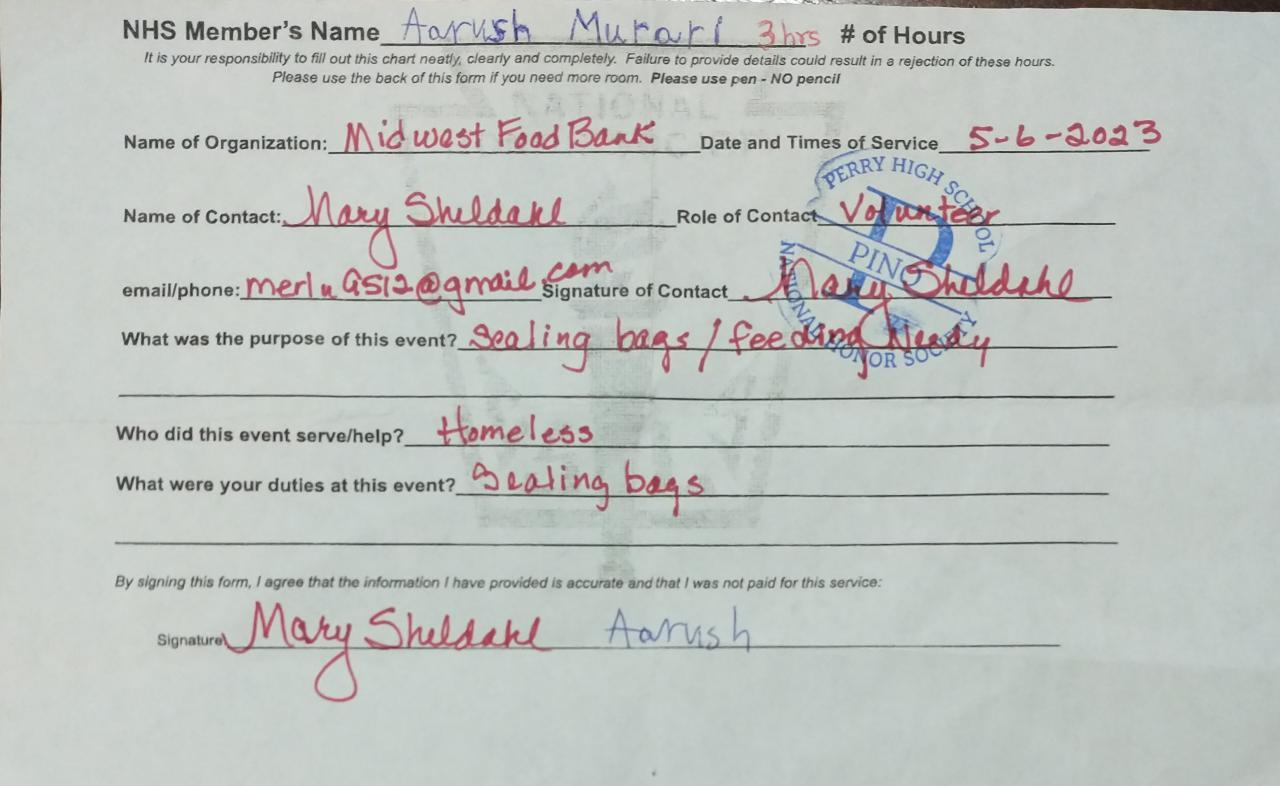 NHS Member's Name Aarush Murari 3hrs # of Hours
It is your responsibility to fill out this chart neatly, clearly and completely. Failure to provide details could result in a rejection of these hours.
Please use the back of this form if you need more room. Please use pen - NO pencil
Name of Organization: Midwest Food Bank Date and Times of Service 5-6-2023
Name of Contact: Mary Sheldahl Role of Contact Volunteer
PERRY HIGH SCHOOL
NATIONAL HONOR SOCIETY
P
email/phone: @gmail.com Signature of Contact Mary Sheldahl
What was the purpose of this event? Sealing bags / feeding Needy
Who did this event serve/help? Homeless
What were your duties at this event? Sealing bags
By signing this form, I agree that the information I have provided is accurate and that I was not paid for this service:
Signature Mary Sheldahl Aarush